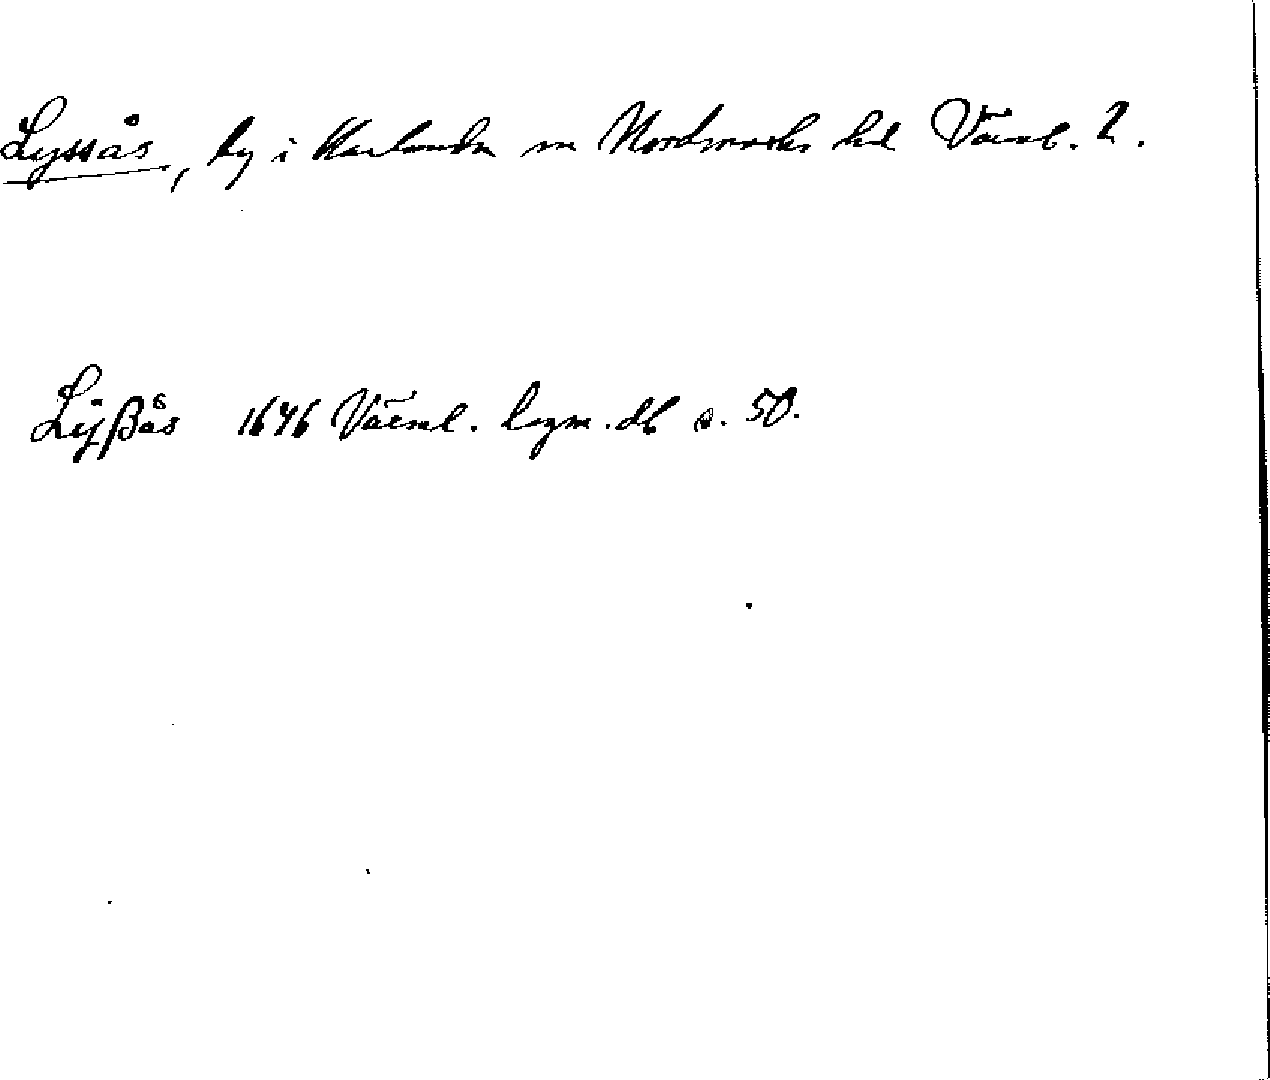 Lyssås, by i Karlanda sn Nordmarks hd Värml. l.
Lÿßås 1646 Värml. lagm. db s. 50.